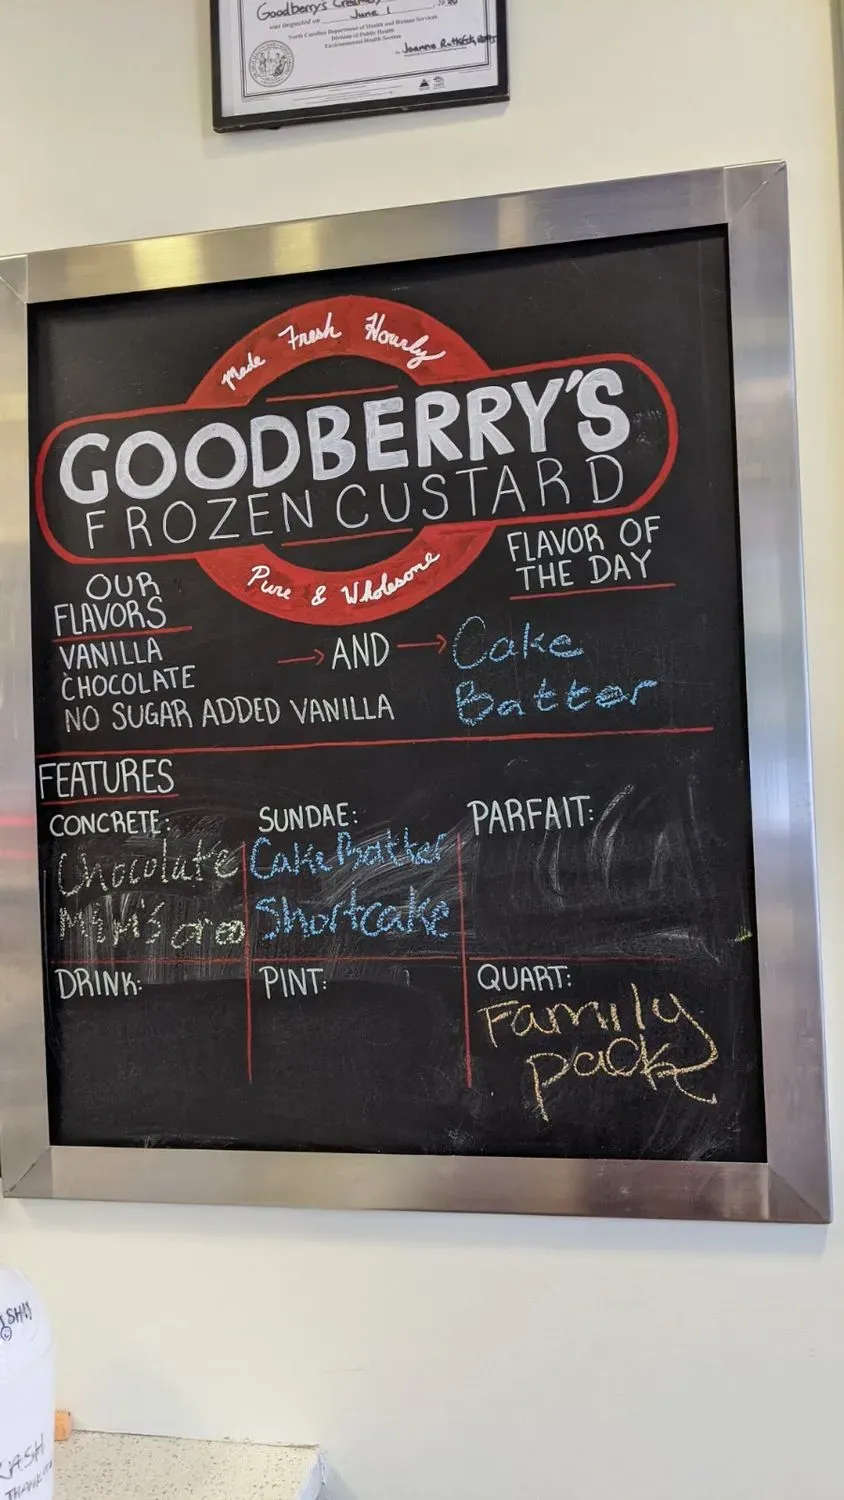 Goodberry's Creamery
was inspected on June 1, 20
North Carolina Department of Health and Human Services
Division of Public Health
Environmental Health Section
Made Fresh Hourly
GOODBERRY'S
FROZEN CUSTARD
Pure & Wholesome
OUR
FLAVORS
VANILLA
CHOCOLATE
NO SUGAR ADDED VANILLA
→ AND →
FLAVOR OF
THE DAY
Cake
Batter
FEATURES
CONCRETE:
Chocolate
M&M's oreo
SUNDAE:
Cake Batter
Shortcake
PARFAIT:
DRINK:
PINT:
QUART:
Family
pack